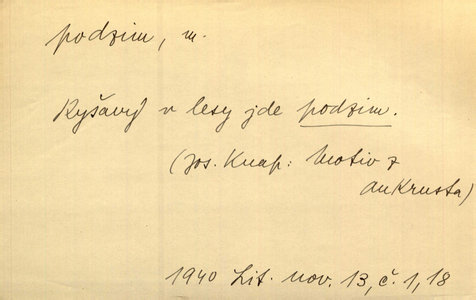 podzim, m.
Ryšavý v lesy jde podzim.
(Jos. Knap: Motiv z
auKrusta)
1940 Lit. nov. 13, č. 1, 18